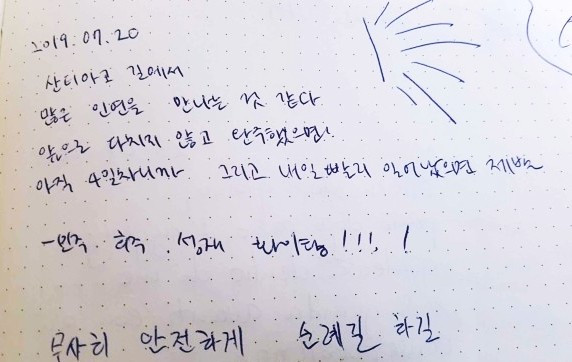 2019. 07. 20
산티아고 길에서
많은 인연을 만나는 것 같다
앞으로 다치지 않고 완주했으면!
아직 4일차니까 그리고 내일 빨리 일어났으면 제발
- 민주 희주 성재 화이팅!!!, !
무사히 안전하게 순례길 하길